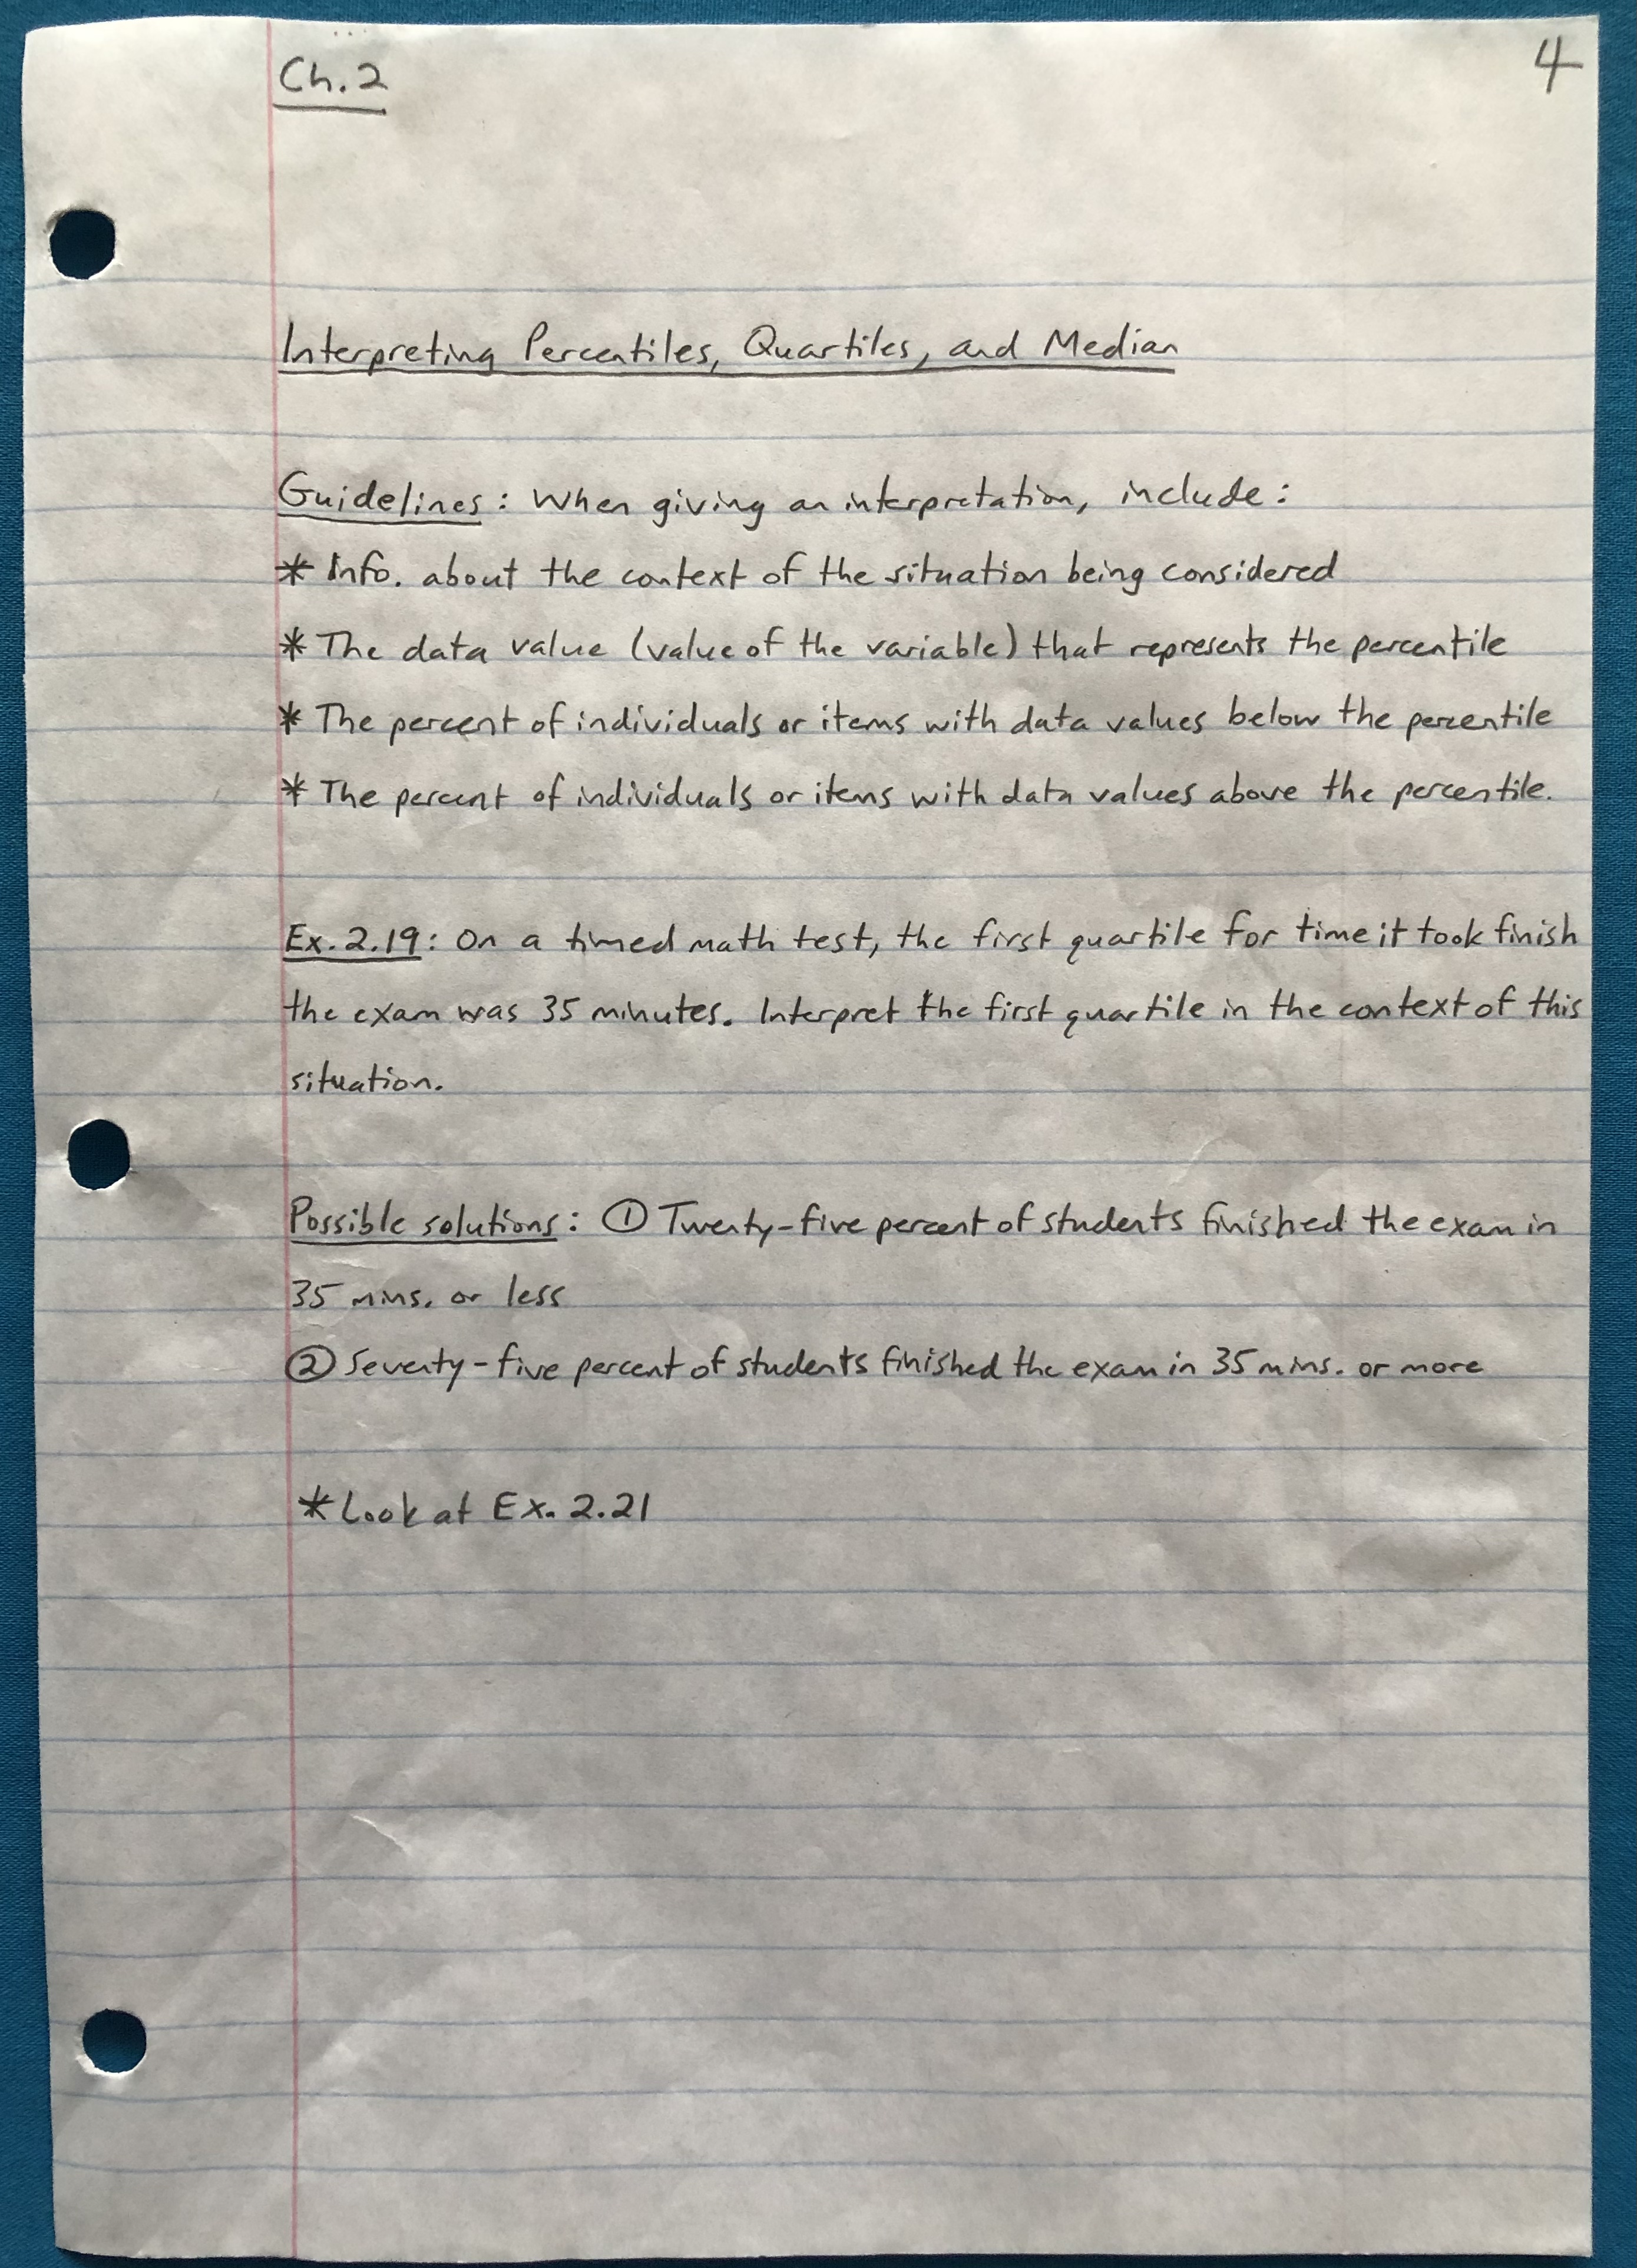 Ch. 2
4
Interpreting Percentiles, Quartiles, and Median
Guidelines: When giving an interpretation, include:
* Info. about the context of the situation being considered
* The data value (value of the variable) that represents the percentile
* The percent of individuals or items with data values below the percentile
* The percent of individuals or items with data values above the percentile.
Ex. 2.19: On a timed math test, the first quartile for time it took finish
the exam was 35 minutes. Interpret the first quartile in the context of this
situation.
Possible solutions: ① Twenty-five percent of students finished the exam in
35 mins. or less
② Seventy-five percent of students finished the exam in 35 mins. or more
* Look at Ex. 2.21